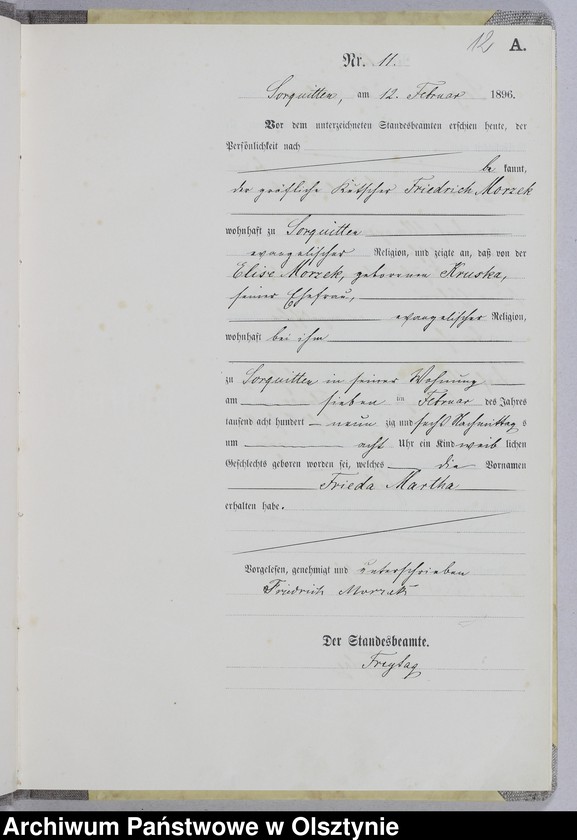 12 A.
Nr. 11.
Sorquitten, am 12. Februar 1896.
Vor dem unterzeichneten Standesbeamten erschien heute, der
Persönlichkeit nach
be kannt,
der gräfliche Kutscher Friedrich Morzek
wohnhaft zu Sorquitten
evangelischer Religion, und zeigte an, daß von der
Elise Morzek, geborenen Kruska,
seiner Ehefrau,
evangelischer Religion,
wohnhaft bei ihm
zu Sorquitten in seiner Wohnung
am sieben im Februar des Jahres
tausend acht hundert neun zig und sechs Nachmittag s
um acht Uhr ein Kind weib lichen
Geschlechts geboren worden sei, welches die Vornamen
Frieda Martha
erhalten habe.
Vorgelesen, genehmigt und unterschrieben
Friedrich Morzek
Der Standesbeamte.
Freytag
Archiwum Państwowe w Olsztynie